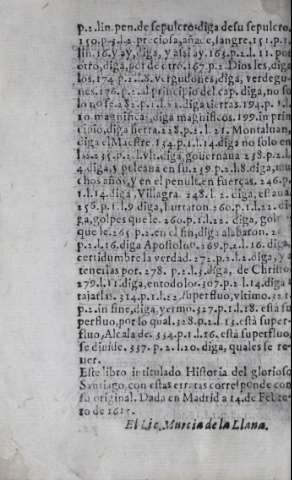 p.2.lin.pen.de sepulcro, diga de su sepulcro.
150.p.1.l.2. preciosa, añade, sangre, 151.p.1.
lin.16. y ay, diga, y assi ay. 165.p.2.l.11. por
otro, diga, por de otro. 167.p.2. Dios les, diga
los, 174 p.2.l.8. vergudones, diga, verdegu-
nes. 176.p.2. al principio del cap. diga, no so
lo no se. 282.p.1.l.21. diga tierras. 194.p.1.l.
10. magnifica: diga magnificos. 199. in prin
cipio, diga sierra. 228.p.2.l.21. Montaluan,
diga el Maestre. 234.p.1.l.14. diga no solo en
las. 235.p.2.l.vlt. diga, gouernaua 238.p.2.l.
4. diga, y peleana en su. 239.p.2.l.8. diga, mu
chos años, y en el penult. en fuerças. 246.p.
1.l.14. diga, Villagra. 248.l.2. diga, estaua.
256.p.1.l.9. diga, hurtaron. 260.p.1.l.22. di-
ga, golpes que le. 260.p.1.l.22. diga, gol
que le. 265.p.2. en el fin, diga alabaron. 26
p.2.l.16. diga Apostolus. 269.p.2.l.16. diga,
certidumbre la verdad. 272.p.2.l.2. diga, y a
tenerlas por. 278. p.2.l.5. diga, de Christo,
279.l.11. diga, entodolor. 307.p.2.l.14. diga
tajarlas. 314.p.1.l.22. superfluo, vltimo. 321.
p.2. in fine, diga, yermo. 327.p.1.l.18. està su
perfluo, por lo qual. 328.p.2.l.13. està super-
fluo, Alcala de. 334.p.1.l.16. està superfluo,
se diuide. 337. p.2.l.20. diga, quales se re-
uer.
Este libro intitulado Historia del glorioso
Santiago, con estas erratas corresponde con
su original. Dada en Madrid a 14. de Febre-
ro de 1615.
El Lic. Murcia de la Llana.